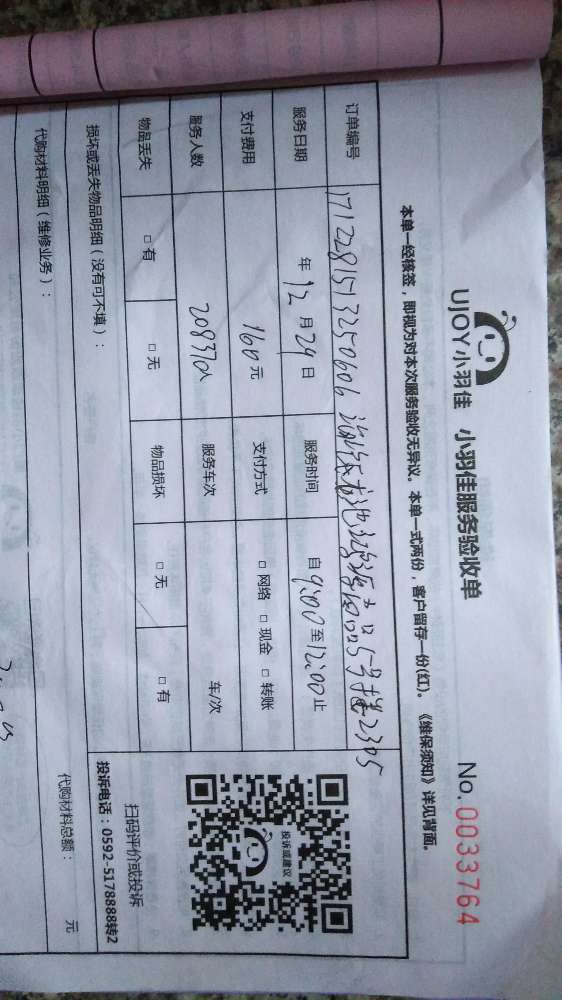 UJOY小羽佳 小羽佳服务验收单 No.0033764
本单一经核签，即视为对本次服务验收无异议。本单一式两份，客户留存一份(红)。《维保须知》详见背面。
订单编号 171228151325060 5号楼2305
服务日期 年12月29日 服务时间 自9:00至12:00止
支付费用 160元 支付方式 □网络 □现金 □转账
服务人数 20837 服务车次 车/次
物品丢失 □有 □无 物品损坏 □无 □有
投诉或建议
扫码评价或投诉
投诉电话：0592-5178888转2
损坏或丢失物品明细（没有可不填）：
代购材料明细（维修业务）： 代购材料总额： 元